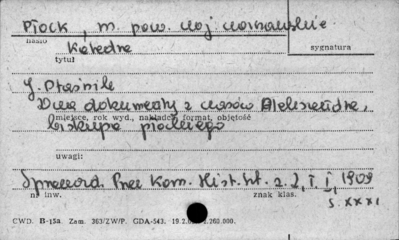 Płock, m. pow. woj. warszawskie
hasło
Katedra
sygnatura
tytuł
J. Ptaśnik
Dwa dokumenty z czasów Aleksandra,
miejsce, rok wyd., nakładca, format, objętość
biskupa płockiego
uwagi:
Sprawozd. Prac Kom. Hist. Szt. z. 2, T. I, 1909
nr inw.
znak klas.
s. XXXI
CWD. B-15a. Zam. 303/ZW/P. GDA-543. 19.2.0 .260.000.